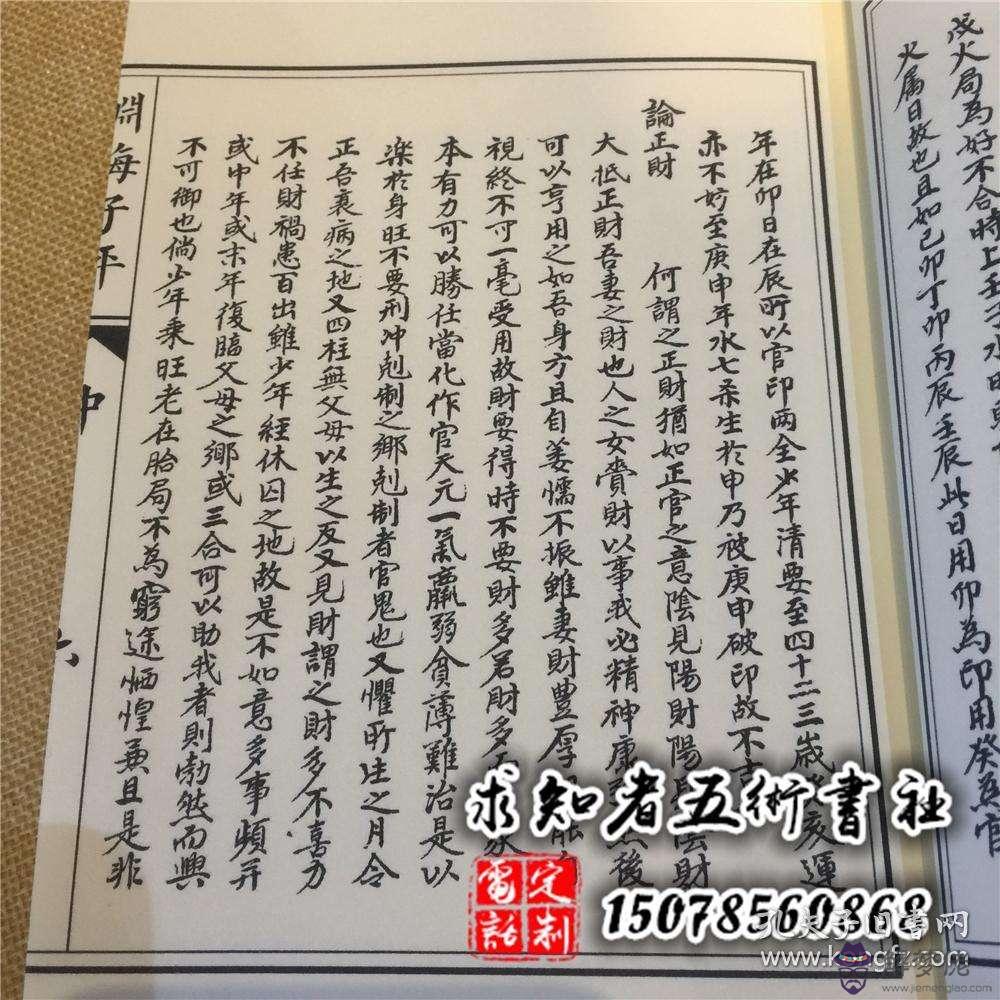 戊火局為好不合時上壬
火属日故也且如己卯丁卯丙辰壬辰此日用卯為印用癸為官
年在卯日在辰所以官印两全少年清要至四十二三歲後亥運
亦不妨至庚申年水七杀生於申乃被庚申破印故不吉
論正財　何謂之正財猶如正官之意陰見陽財陽見陰財
大抵正財吾妻之財也人之女賫財以事我必精神康然後
可以享用之如吾身方且自萎懦不振雖妻財豊厚能
視終不可一毫受用故財要得時不要財多若財多
本有力可以勝任當化作官天元一氣羸弱貧薄難治是以
楽於身旺不要刑冲剋制之鄉剋制者官鬼也又懼所生之月令
正吾衰病之地又四柱無父母以生之反又見財謂之財多不喜力
不任財禍患百出雖少年経休囚之地故是不如意多事頻并
或中年或末年復臨父母之鄉或三合可以助我者則勃然而興
不可御也倘少年乗旺老在胎局不為窮途恓惶兼且是非
淵海子平
求知者五術書社
定制
電話
15078560868
孔夫子旧書网
www.kongfz.com
www.jiemenglao.com